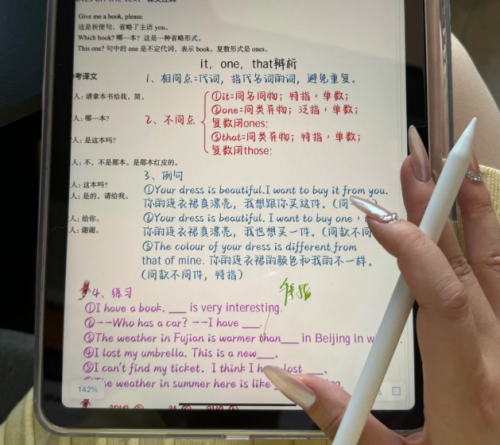 Give me a book, please.
这是祈使句,省略了主语 you。
Which book? 哪一本?这是一种省略形式。
This one? 句中的 one 是不定代词,表示 book。复数形式是 ones。
it, one, that辨析
考译文
1、相同点:代词,指代名词的词,避免重复。
人:请拿本书给我,简。
①it=同名同物;特指,单数;
人:哪一本?
②one=同类异物;泛指,单数;
2、不同点
复数用ones;
人:是这本吗?
③that=同类异物;特指,单数;
复数用those;
人:不,不是那本。是那本红皮的。
3、例句
人:这本吗?
①Your dress is beautiful. I want to buy it from you.
人:是的,请给我。
你的连衣裙真漂亮,我想跟你买这件。(同
人:给你。
②Your dress is beautiful. I want to buy one
人:谢谢。
你的连衣裙真漂亮,我也想买一件。(同款不同
③The colour of your dress is different from
that of mine. 你的连衣裙的颜色和我的不一样。
(同款不同件,特指)
4、练习
①I have a book. ___ is very interesting.
②--Who has a car? --I have ___.
③The weather in Fujian is warmer than___ in Beijing in w
④I lost my umbrella. This is a new___.
⑤I can't find my ticket. I think I have lost ___.
⑥The weather in summer here is like
142%